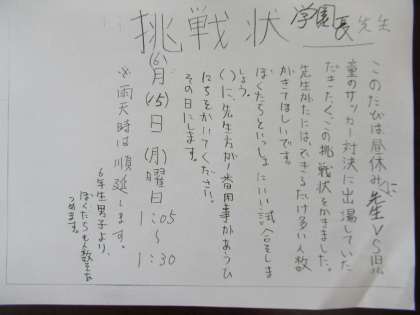 挑戦状 学園長先生
このたびは昼休みに先生VS児
童のサッカー対決に出場していた
だきたく、この挑戦状をかきました。
先生がたには、できるだけ多い人数
かきてほしいです。
ぼくたちといっしょにいい試合をしま
しょう。
( )に、先生方が1番用事があうひ
にちをかいてください。
その日にします。
(6)月(15)日(月)曜日 1:05〜1:30
※雨天時は順延します。
6年生男子より、
ぼくたちも人数を
つめます。